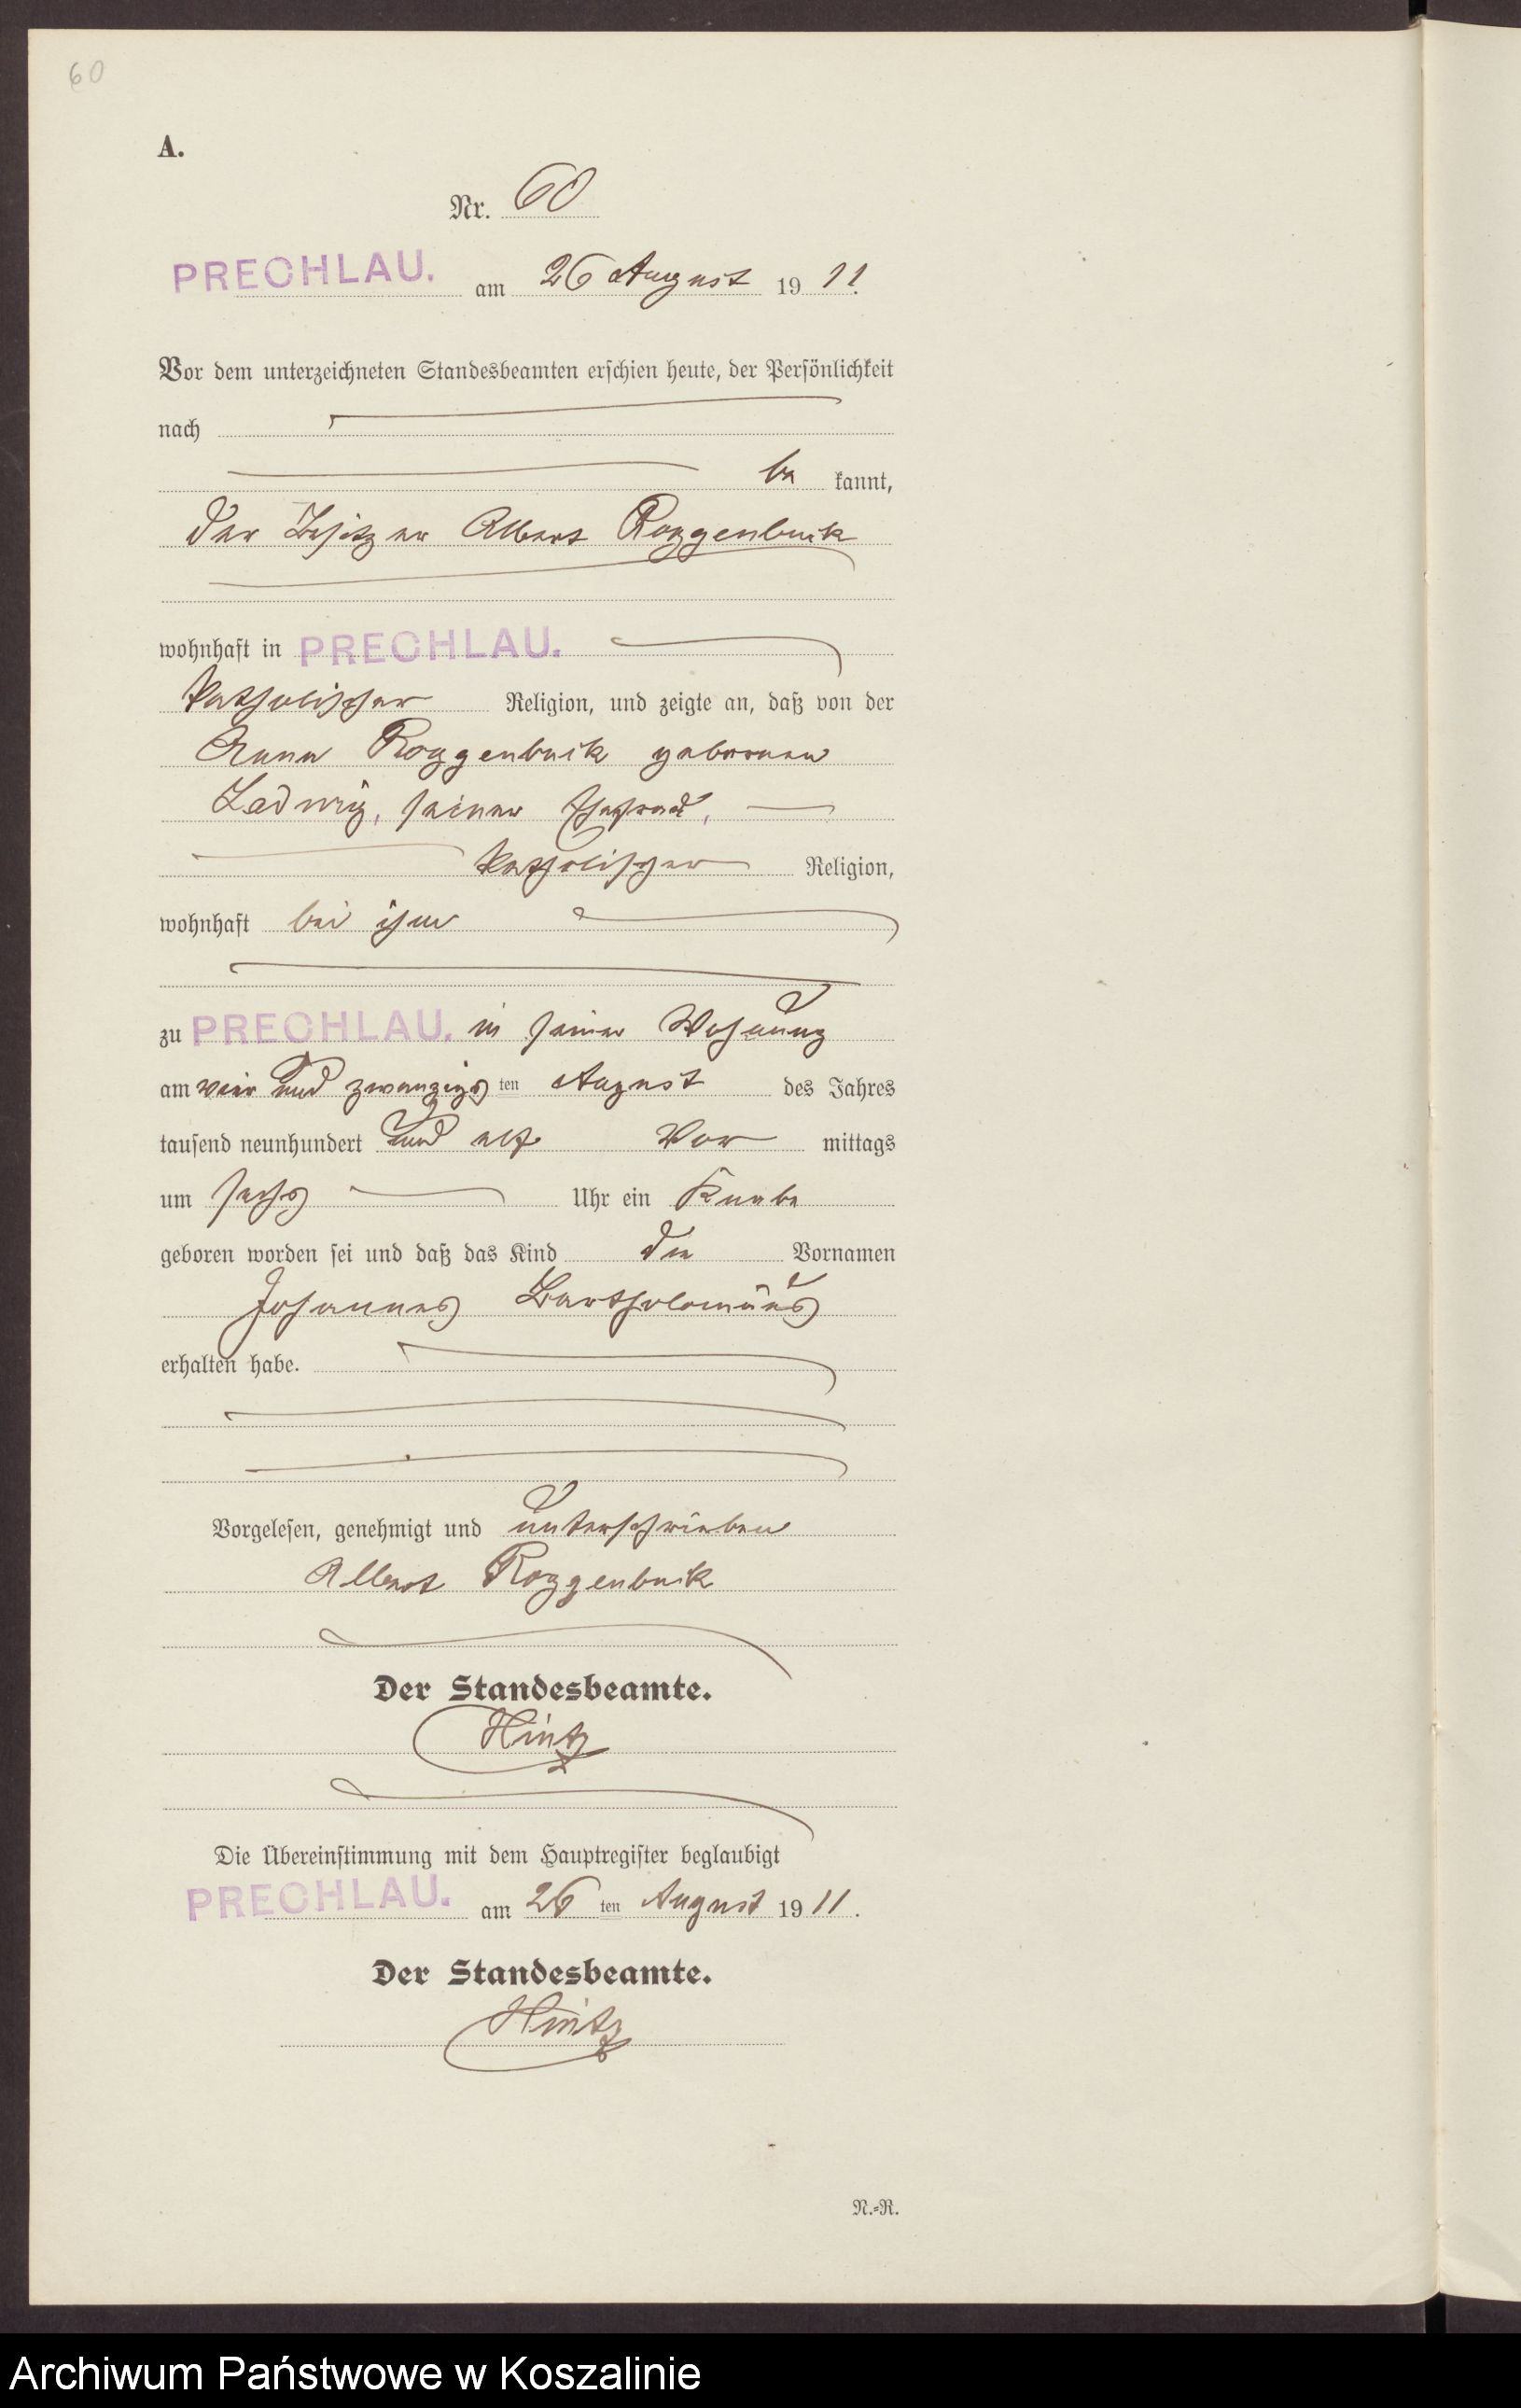 60
A.
Nr. 60
PRECHLAU. am 26 August 1911.
Vor dem unterzeichneten Standesbeamten erschien heute, der Persönlichkeit
nach
be kannt,
der Besitzer Albert Roggenbuck
wohnhaft in PRECHLAU.
katholischer Religion, und zeigte an, daß von der
Anna Roggenbuck geborenen
Ladwig, seiner Ehefrau,
katholischer Religion,
wohnhaft bei ihm
zu PRECHLAU. in seiner Wohnung
am vier und zwanzigs ten August des Jahres
tausend neunhundert und elf Vor mittags
um sechs Uhr ein Knabe
geboren worden sei und daß das Kind die Vornamen
Johannes Bartholomäus
erhalten habe.
Vorgelesen, genehmigt und unterschrieben
Albert Roggenbuck
Der Standesbeamte.
Hintz
Die Übereinstimmung mit dem Hauptregister beglaubigt
PRECHLAU. am 26 ten August 1911.
Der Standesbeamte.
Hintz
N.=R.
Archiwum Państwowe w Koszalinie